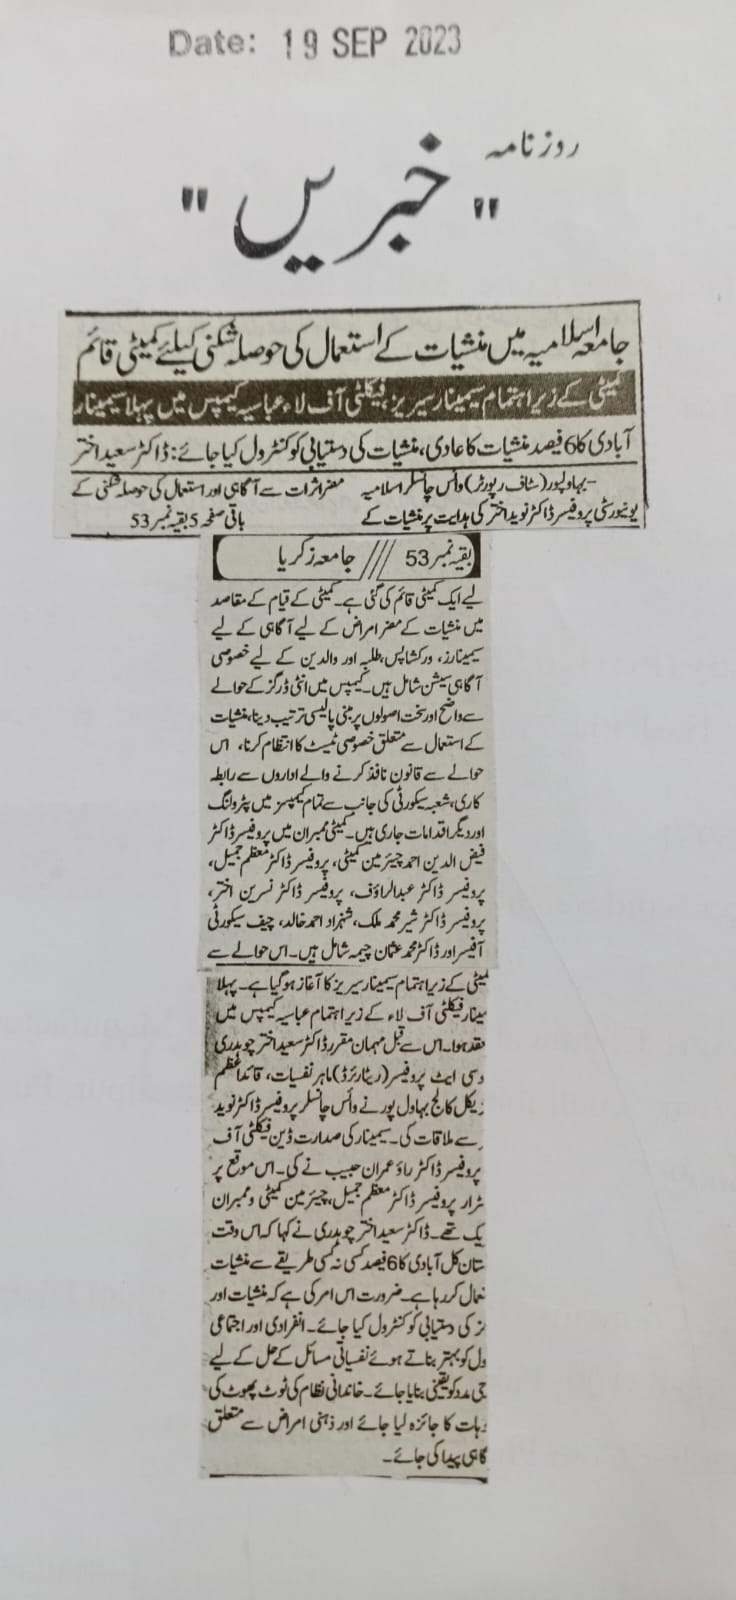 Date: 19 SEP 2023
روزنامہ
"خبریں"
جامعہ اسلامیہ میں منشیات کے استعمال کی حوصلہ شکنی کیلئے کمیٹی قائم
کمیٹی کے زیر اہتمام سیمینار سیریز، فیکلٹی آف لاء عباسیہ کیمپس میں پہلا سیمینار
آبادی کا 6 فیصد منشیات کا عادی، منشیات کی دستیابی کو کنٹرول کیا جائے: ڈاکٹر سعید اختر
بہاولپور (سٹاف رپورٹر) وائس چانسلر اسلامیہ
یونیورسٹی پروفیسر ڈاکٹر نوید اختر کی ہدایت پر منشیات کے
مضر اثرات سے آگاہی اور استعمال کی حوصلہ شکنی کے
باقی صفحہ 5 بقیہ نمبر 53
بقیہ نمبر 53 /// جامعہ زکریا
لیے ایک کمیٹی قائم کی گئی ہے۔ کمیٹی کے قیام کے مقاصد
میں منشیات کے مضر امراض کے لیے آگاہی کے لیے
سیمینارز، ورکشاپس، طلبہ اور والدین کے لیے خصوصی
آگاہی سیشن شامل ہیں۔ کیمپس میں انٹی ڈرگز کے حوالے
سے واضح اور سخت اصولوں پر مبنی پالیسی ترتیب دینا، منشیات
کے استعمال سے متعلق خصوصی ٹیسٹ کا انتظام کرنا، اس
حوالے سے قانون نافذ کرنے والے اداروں سے رابطہ
کاری، شعبہ سیکورٹی کی جانب سے تمام کیمپسز میں پٹرولنگ
اور دیگر اقدامات جاری ہیں۔ کمیٹی ممبران میں پروفیسر ڈاکٹر
فیض الدین احمد چیئر مین کمیٹی، پروفیسر ڈاکٹر معظم جمیل،
پروفیسر ڈاکٹر عبدالرؤف، پروفیسر ڈاکٹر نسرین اختر،
پروفیسر ڈاکٹر شیر محمد ملک، شہزاد احمد خالد، چیف سیکورٹی
آفیسر اور ڈاکٹر محمد عثمان چیمہ شامل ہیں۔ اس حوالے سے
کمیٹی کے زیر اہتمام سیمینار سیریز کا آغاز ہو گیا ہے۔ پہلا
مینار فیکلٹی آف لاء کے زیر اہتمام عباسیہ کیمپس میں
نقد ہوا۔ اس سے قبل مہمان مقرر ڈاکٹر سعید اختر چوہدری
وسی ایٹ پروفیسر (ریٹائرڈ) ماہر نفسیات، قائداعظم
یکل کالج بہاول پور نے وائس چانسلر پروفیسر ڈاکٹر نوید
ر سے ملاقات کی۔ سیمینار کی صدارت ڈین فیکلٹی آف
پروفیسر ڈاکٹر راؤ عمران حبیب نے کی۔ اس موقع پر
ٹرار پروفیسر ڈاکٹر معظم جمیل، چیئر مین کمیٹی و ممبران
یک تھے۔ ڈاکٹر سعید اختر چوہدری نے کہا کہ اس وقت
ستان کل آبادی کا 6 فیصد کسی نہ کسی طریقے سے منشیات
عمال کر رہا ہے۔ ضرورت اس امر کی ہے کہ منشیات اور
ز کی دستیابی کو کنٹرول کیا جائے۔ انفرادی اور اجتماعی
ول کو بہتر بناتے ہوئے نفسیاتی مسائل کے حل کے لیے
جی مدد کو یقینی بنایا جائے۔ خاندانی نظام کی ٹوٹ پھوٹ کی
وہات کا جائزہ لیا جائے اور ذہنی امراض سے متعلق
گاہی پیدا کی جائے۔